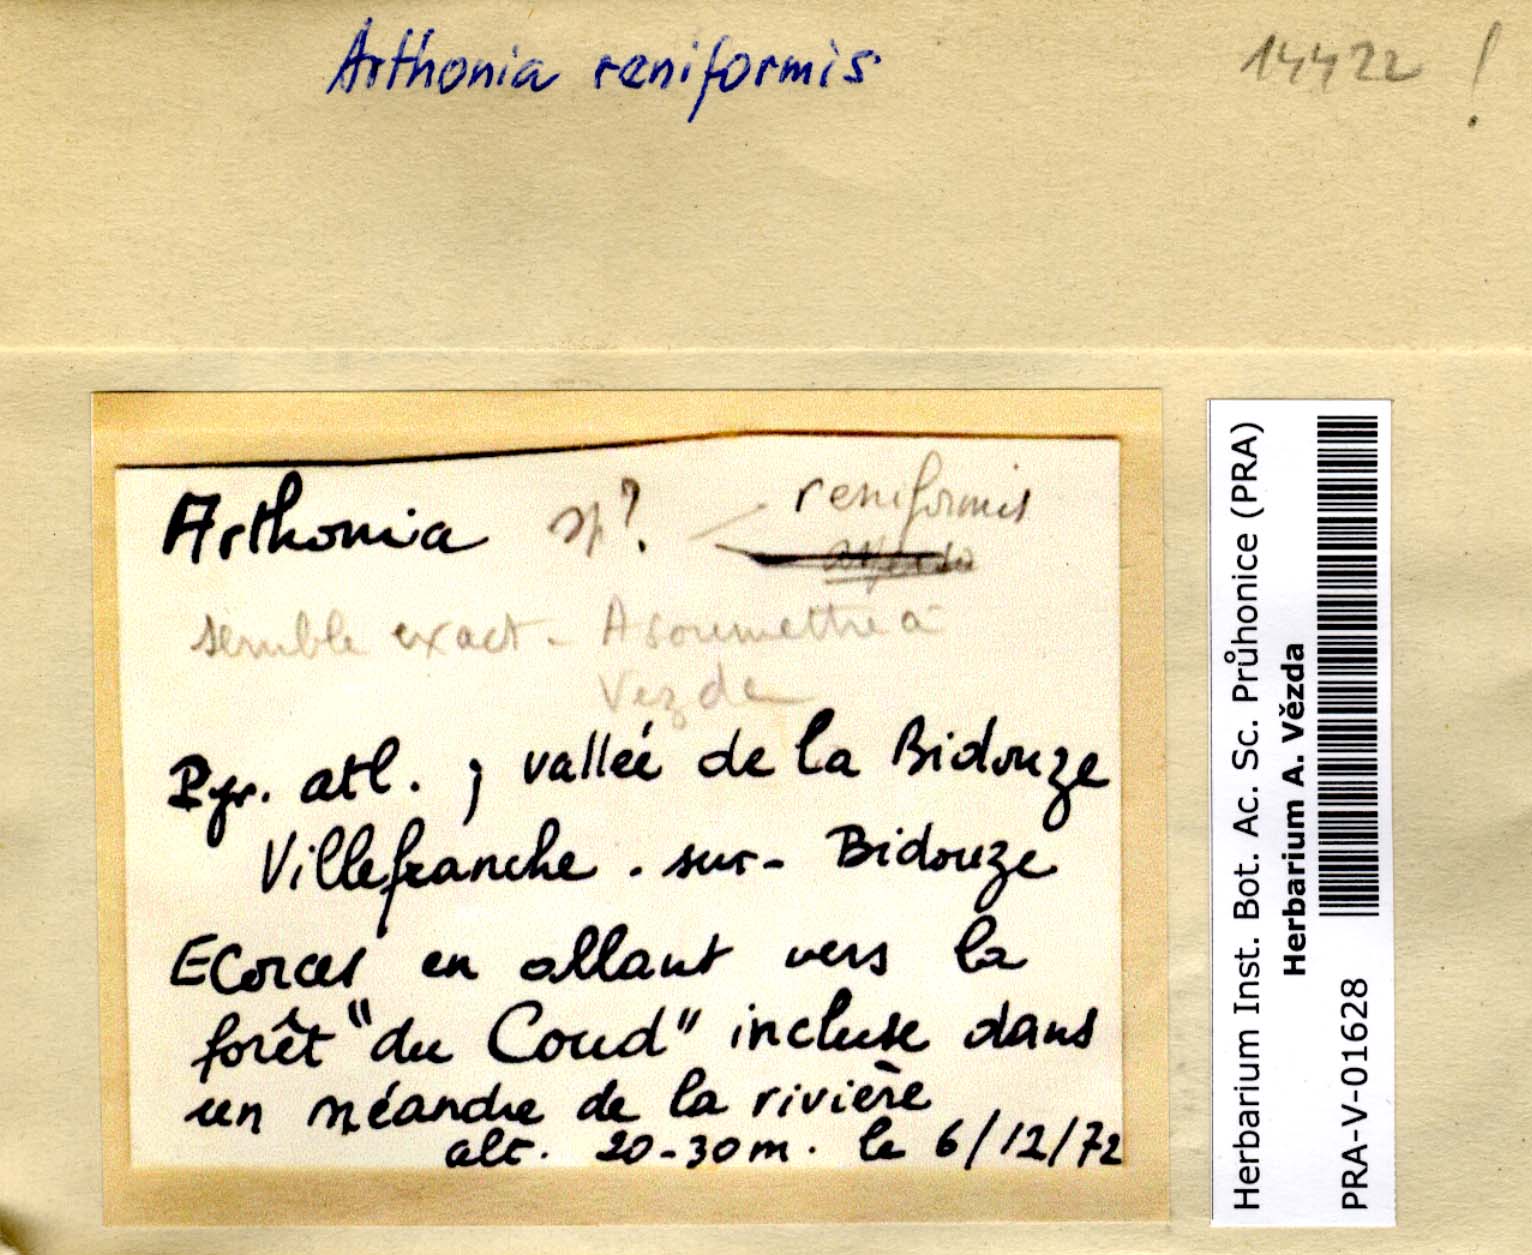 Arthonia reniformis
14422 !
Arthonia sp?
reniformis
semble exact - A soumettre à
Vezda
Pyr. atl. ; vallée de la Bidouze
Villefranche - sur - Bidouze
Ecorces en allant vers la
forêt "du Coud" incluse dans
un méandre de la rivière
alt. 20-30m. le 6/12/72
Herbarium Inst. Bot. Ac. Sc. Průhonice (PRA)
Herbarium A. Vězda
PRA-V-01628